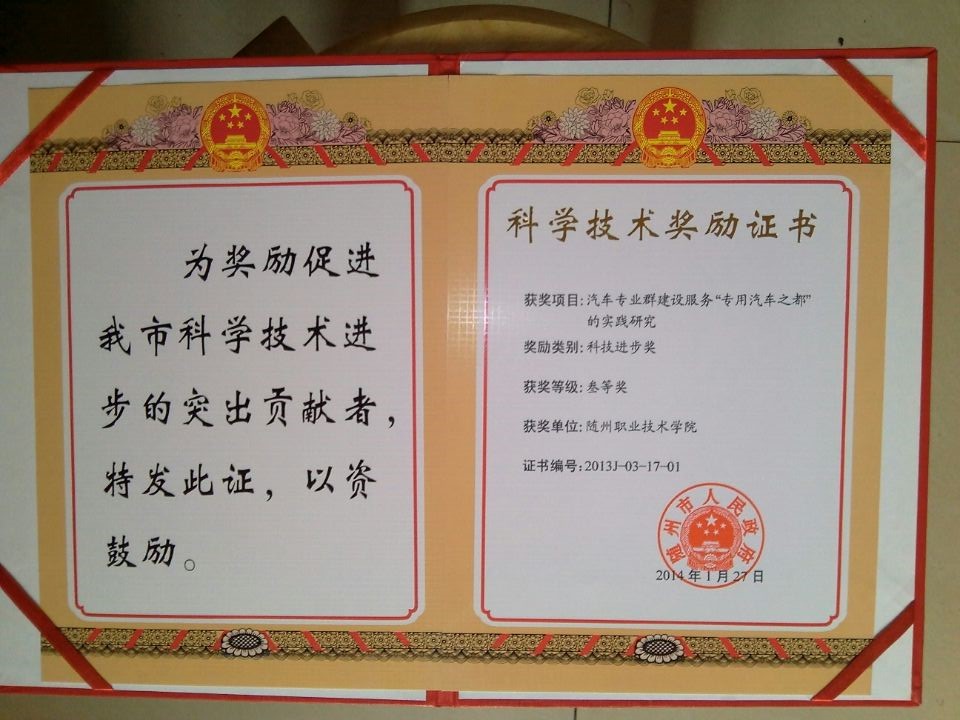 为奖励促进
我市科学技术进
步的突出贡献者，
特发此证，以资
鼓励。
科学技术奖励证书
获奖项目：汽车专业群建设服务“专用汽车之都”
的实践研究
奖励类别：科技进步奖
获奖等级：叁等奖
获奖单位：随州职业技术学院
证书编号：2013J-03-17-01
随州市人民政府
2014年1月27日